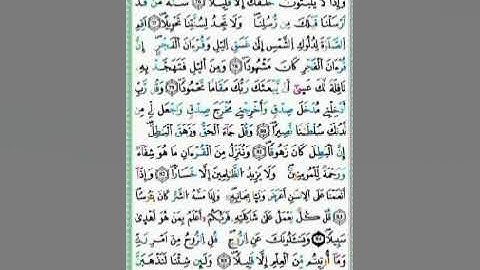 وَإِذًا لَّا يَلْبَثُونَ خِلَـٰفَكَ إِلَّا قَلِيلًا ۝ سُنَّةَ مَن قَدْ
أَرْسَلْنَا قَبْلَكَ مِن رُّسُلِنَا ۖ وَلَا تَجِدُ لِسُنَّتِنَا تَحْوِيلًا ۝ أَقِمِ
الصَّلَوٰةَ لِدُلُوكِ الشَّمْسِ إِلَىٰ غَسَقِ الَّيْلِ وَقُرْءَانَ الْفَجْرِ ۖ إِنَّ
قُرْءَانَ الْفَجْرِ كَانَ مَشْهُودًا ۝ وَمِنَ الَّيْلِ فَتَهَجَّدْ بِهِ
نَافِلَةً لَّكَ عَسَىٰ أَن يَبْعَثَكَ رَبُّكَ مَقَامًا مَّحْمُودًا ۝ وَقُل رَّبِّ
أَدْخِلْنِي مُدْخَلَ صِدْقٍ وَأَخْرِجْنِي مُخْرَجَ صِدْقٍ وَاجْعَل لِّي مِن
لَّدُنكَ سُلْطَـٰنًا نَّصِيرًا ۝ وَقُلْ جَاءَ الْحَقُّ وَزَهَقَ الْبَـٰطِلُ ۚ
إِنَّ الْبَـٰطِلَ كَانَ زَهُوقًا ۝ وَنُنَزِّلُ مِنَ الْقُرْءَانِ مَا هُوَ شِفَاءٌ
وَرَحْمَةٌ لِّلْمُؤْمِنِينَ ۙ وَلَا يَزِيدُ الظَّـٰلِمِينَ إِلَّا خَسَارًا ۝ وَإِذَا
أَنْعَمْنَا عَلَى الْإِنسَـٰنِ أَعْرَضَ وَنَـَٔا بِجَانِبِهِ ۖ وَإِذَا مَسَّهُ الشَّرُّ كَانَ يَـُٔوسًا
۝ قُلْ كُلٌّ يَعْمَلُ عَلَىٰ شَاكِلَتِهِ فَرَبُّكُمْ أَعْلَمُ بِمَنْ هُوَ أَهْدَىٰ
سَبِيلًا ۝ وَيَسْـَٔلُونَكَ عَنِ الرُّوحِ ۖ قُلِ الرُّوحُ مِنْ أَمْرِ رَبِّي
وَمَا أُوتِيتُم مِّنَ الْعِلْمِ إِلَّا قَلِيلًا ۝ وَلَئِن شِئْنَا لَنَذْهَبَنَّ